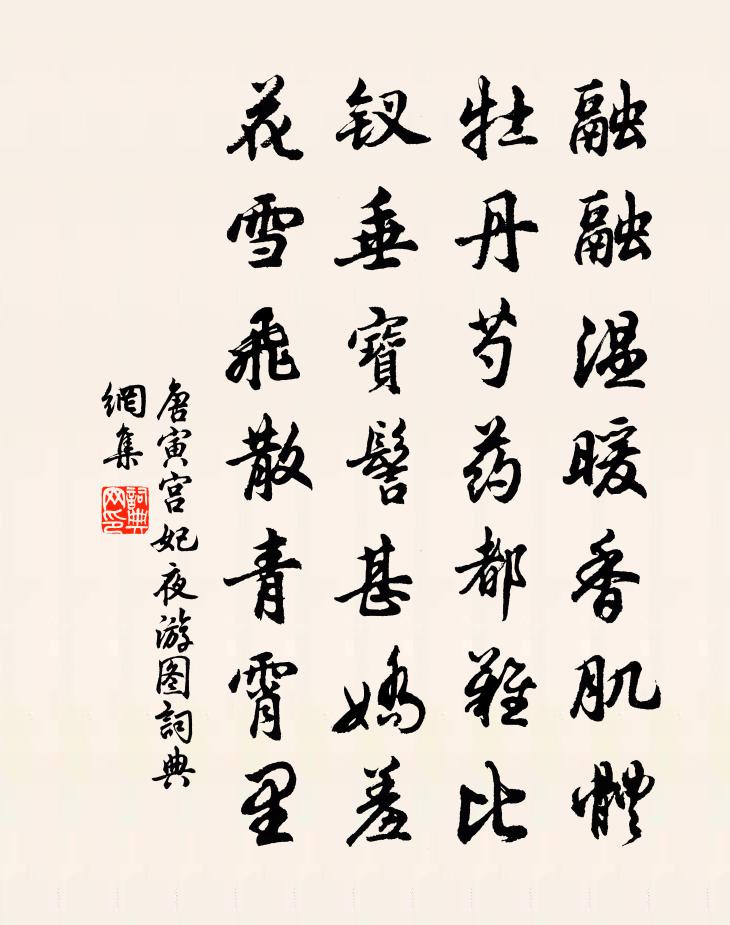 融融温暖香肌體
牡丹芍药都難比
钗垂寶髻甚嬌羞
花雪飛散青霄里
唐寅宫妃夜游图詞典
網集
詞典
网印